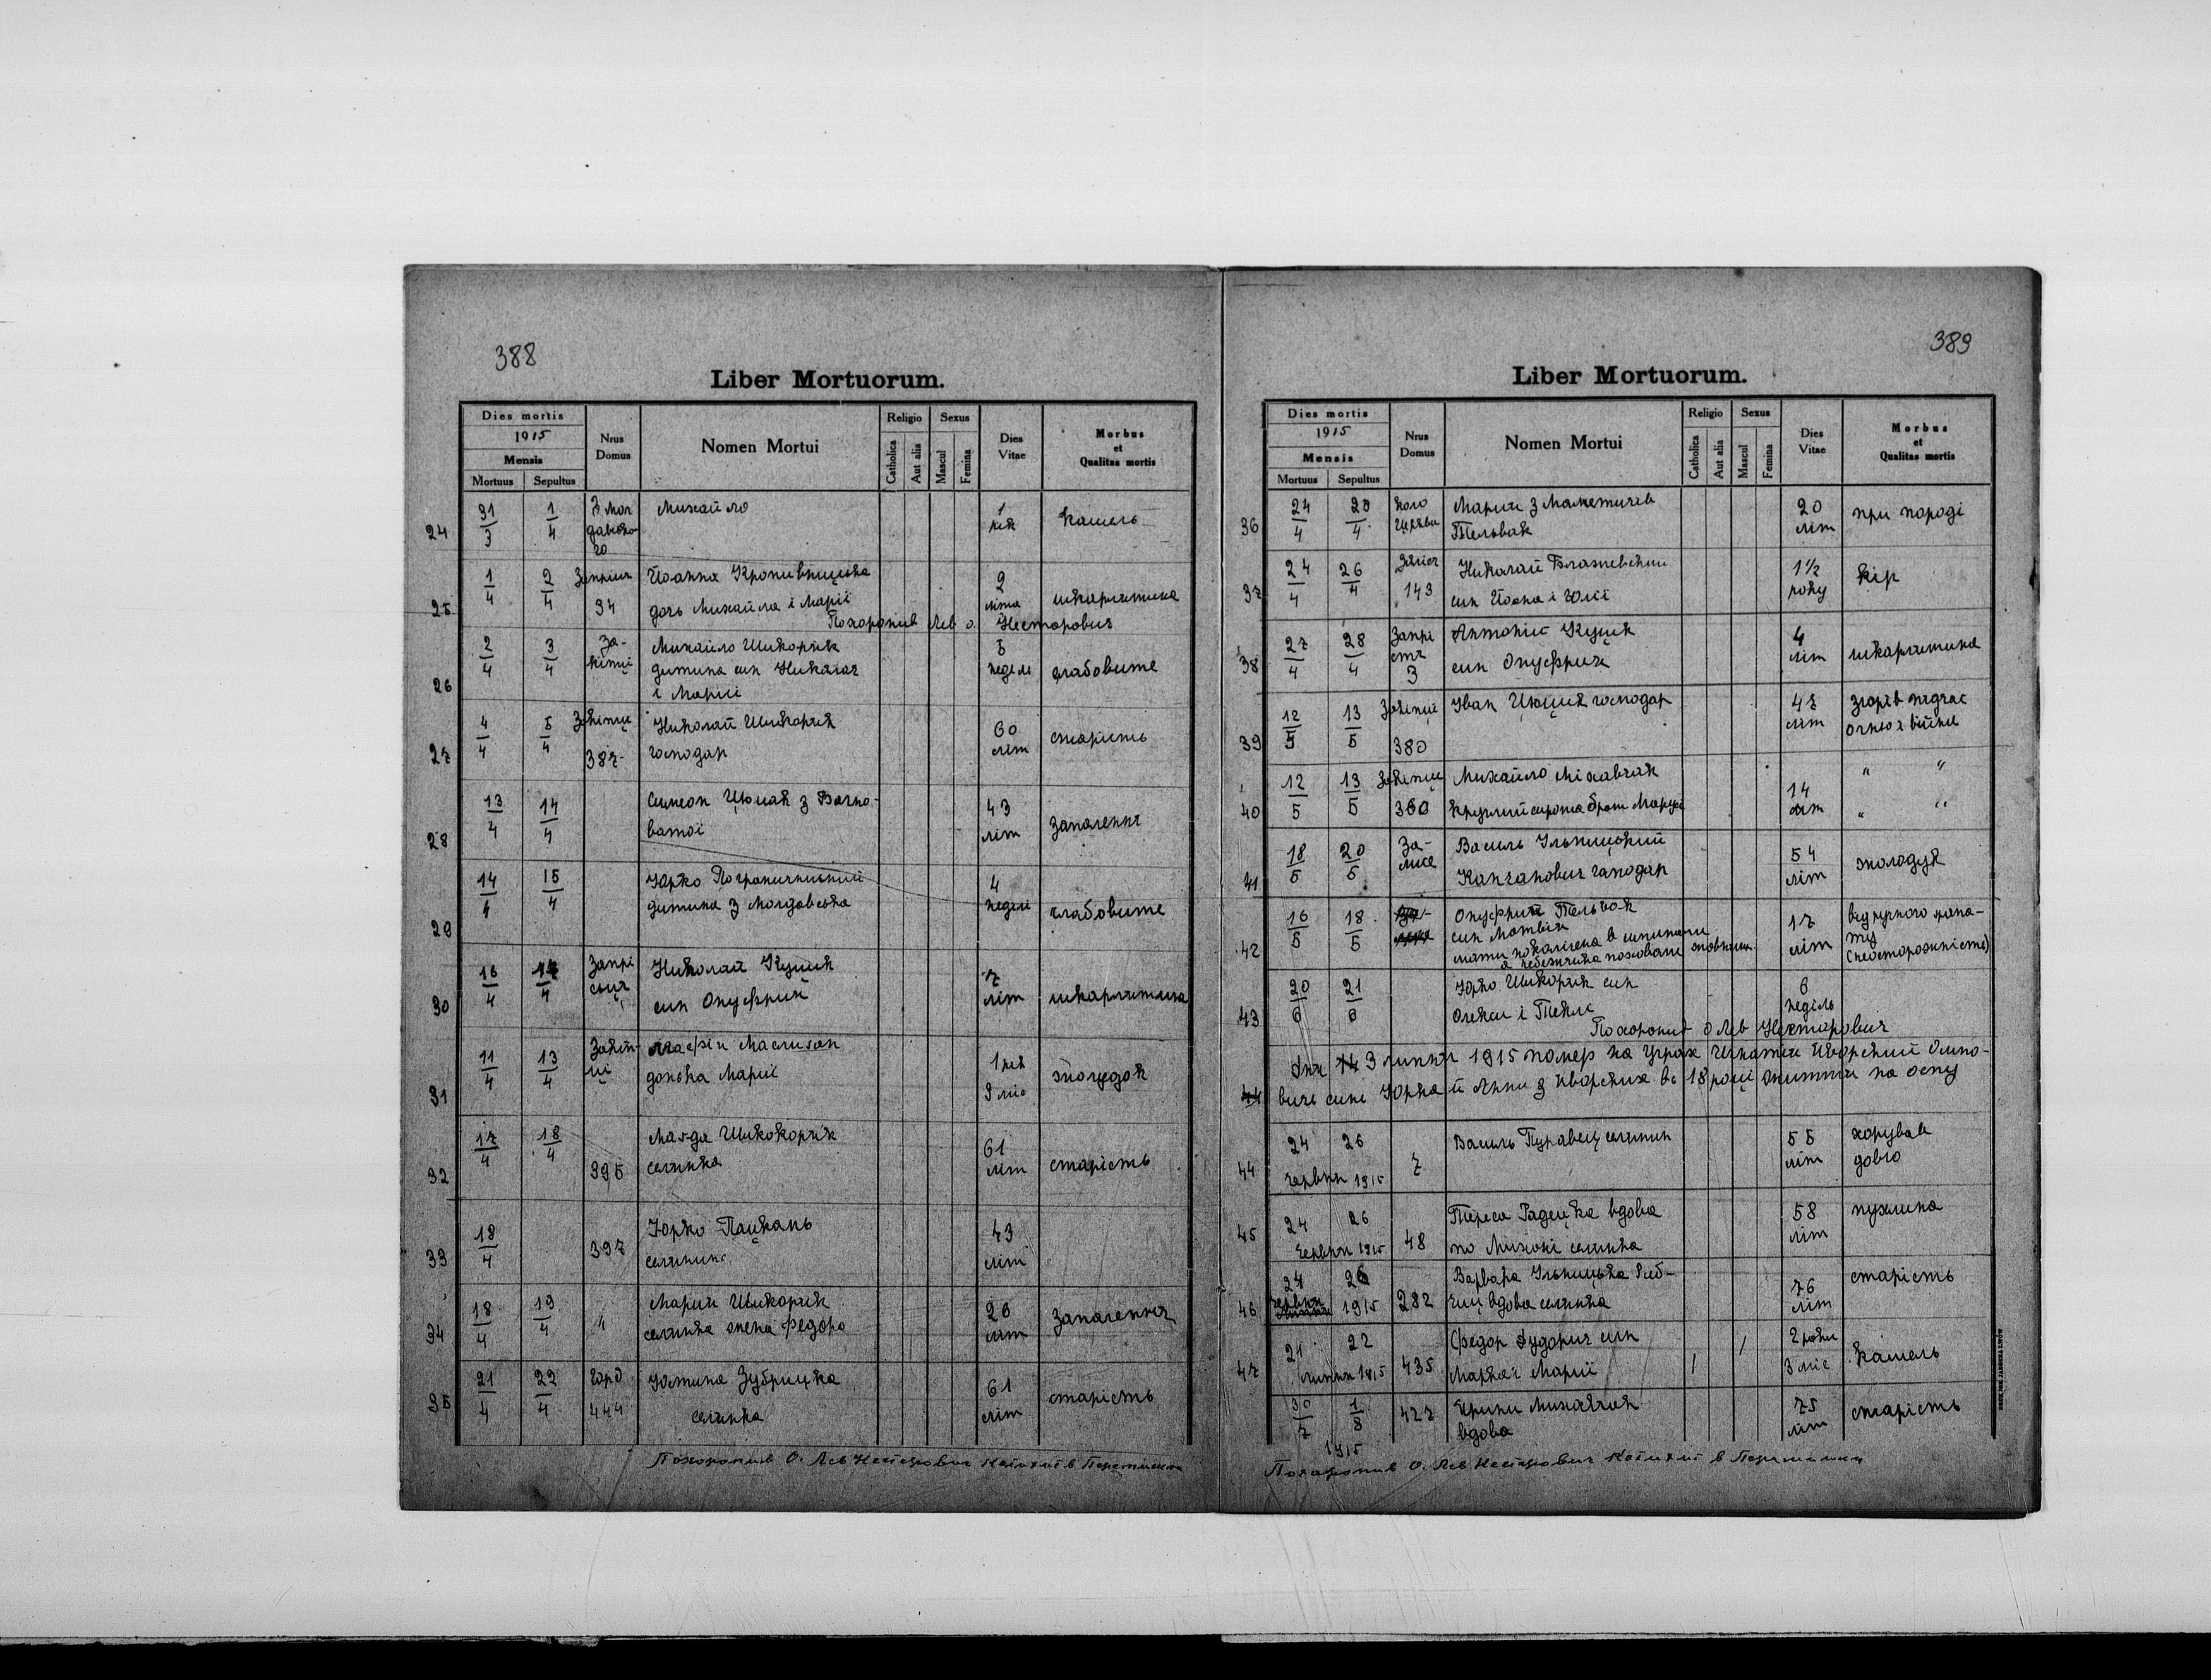 388
Liber Mortuorum.
Dies mortis
1915
Mensis
Mortuus Sepultus
Nrus Domus
Nomen Mortui
Religio
Catholica Aut alia
Sexus
Mascul Femina
Dies Vitae
Morbus et Qualitas mortis
24 31/3 1/4 Михайло 1 рік кашель
25 1/4 2/4 34 Йоанна Кропивницька 2 літа шкарлятина
дочь Михайла і Марії
Похоронив Лев о. Несторович
26 2/4 3/4 За-
кітці Михайло Шикоряк 5 неділь слабовите
дитина син Николая
і Марії
27 4/4 5/4 Закітці 387 Николай Шикоряк 60 літ старість
господар
28 13/4 14/4 Симеон Цюпак з Вагно- 43 літ запалення
ватої
29 14/4 15/4 Юрко Пограничний 4 неділі слабовите
дитина з Молдавська
30 16/4 17/4 Николай Куцик 7 літ шкарлятина
син Онуфрий
31 11/4 13/4 1 рік 9 міс жолудок
донька Марії
32 17/4 18/4 395 Магда Шикокоряк 61 літ старість
селянка
33 18/4 397 Юрко 43 літ
селянин
34 18/4 19/4 " Мария Шикоряк 26 літ запаленння
селянка жена Федора
35 21/4 22/4 444 Юстина Зубрицка 61 літ старість
селянка
Похоронив О. Лев Несторович Катихит в Перемишли
389
Liber Mortuorum.
Dies mortis
1915
Mensis
Mortuus Sepultus
Nrus Domus
Nomen Mortui
Religio
Catholica Aut alia
Sexus
Mascul Femina
Dies Vitae
Morbus et Qualitas mortis
36 24/4 коло Церкви Мария з Маметичів 20 літ при породі
Тельвак
37 24/4 26/4 143 Николай Блажевский 1½ року кір
син Йоана і Юлії
38 27/4 28/4 3 Антоній Куцик 4 літ шкарлятина
син Онуфрия
39 12/5 13/5 Закітці 380 Іван господар 47 літ згорів підчас
огню з війни
40 12/5 13/5 Закітці 380 Михайло Міхавчак 14 літ " "
круглий сирота брат Марусі " "
41 18/5 20/5 За-
лісе Василь Ільницький 54 літ жолодук
Канчанович господар
42 16/5 18/5 Онуфрий Тельвак 17 літ від ручного грана-
син Матвія ту
мати покалічена в шпитали (неосторожність)
43 20/6 21/6 Юрко Шикоряк син 6 неділь
Олекси і Теклі
Похоронив о Лев Несторович
Дня 3 липня 1915 помер на Уграх Игнатий Яворский Олпо-
вичь синь Юрка й Анни з Яворских в 18 році життя на оспу
44 24 26 7 Василь Журавец селянин 55 літ хорував
червня 1915 довго
45 24 26 48 Тереса Радецка вдова 58 літ пухлина
червня 1915 по Михоні селянка
46 24 26 282 Варвара Ільницька 76 літ старість
червня 1915 вдова селянка
47 21 22 435 Федор Дудорич син / / 2 роки
липня 1915 Марка і Марії 3 міс кашель
30/7 1/8 427 Ирина Михавчак 75 літ старість
1915 вдова
Похоронив О. Лев Несторович Катихит в Перемишли